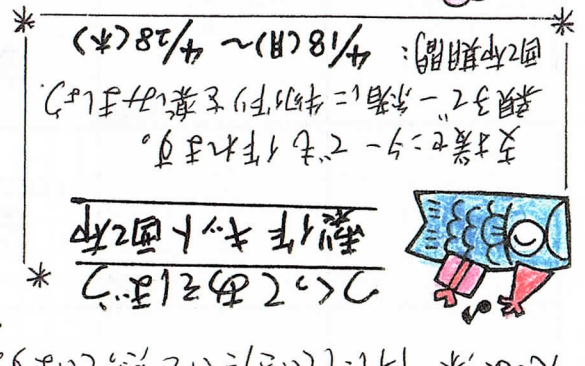 つくってあそぼう
製作キット配布
支援センターでも作れます。
親子で一緒に物作りを楽しみましょう
配布期間: 4/18(月)～ 4/28(木)